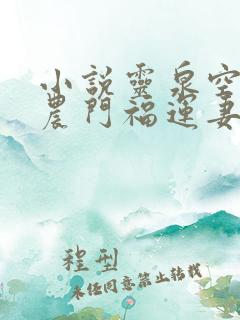 小說靈泉空
農門福運妻
程型
未經同意禁止轉載